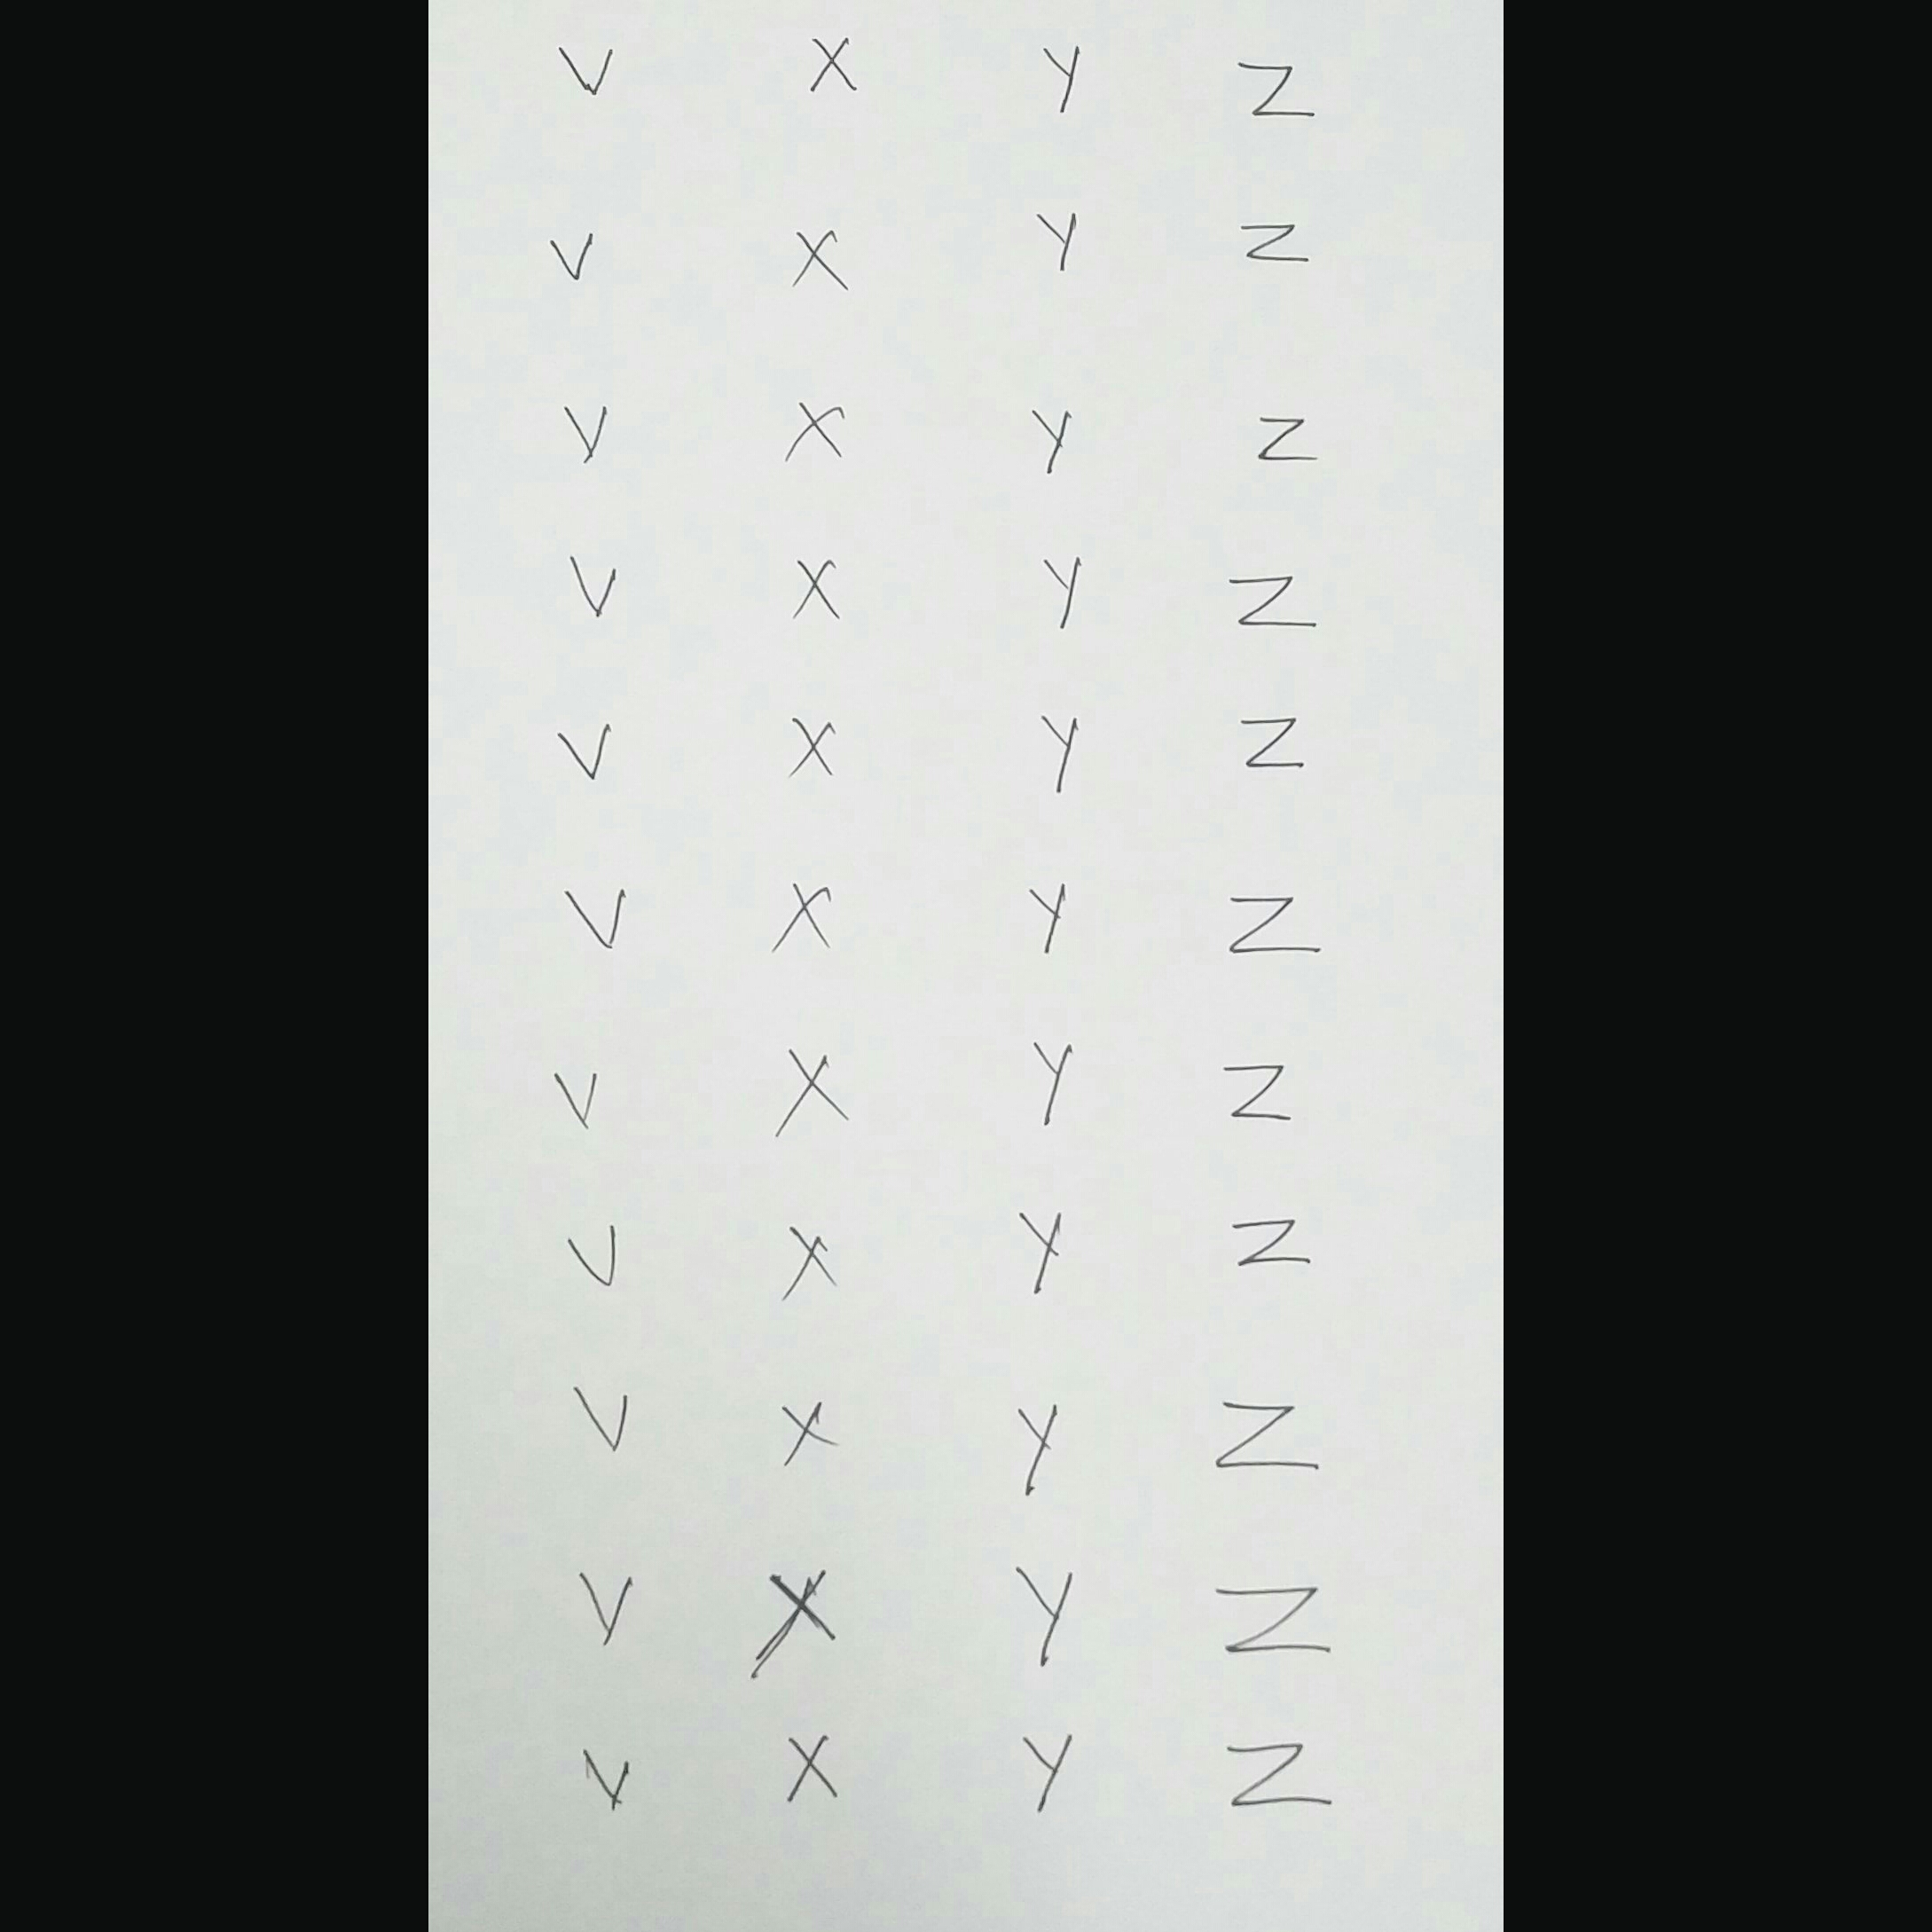 V X Y Z
V X Y Z
V X Y Z
V X Y Z
V X Y Z
V X Y Z
V X Y Z
V X Y Z
V X Y Z
V X Y Z
V X Y Z